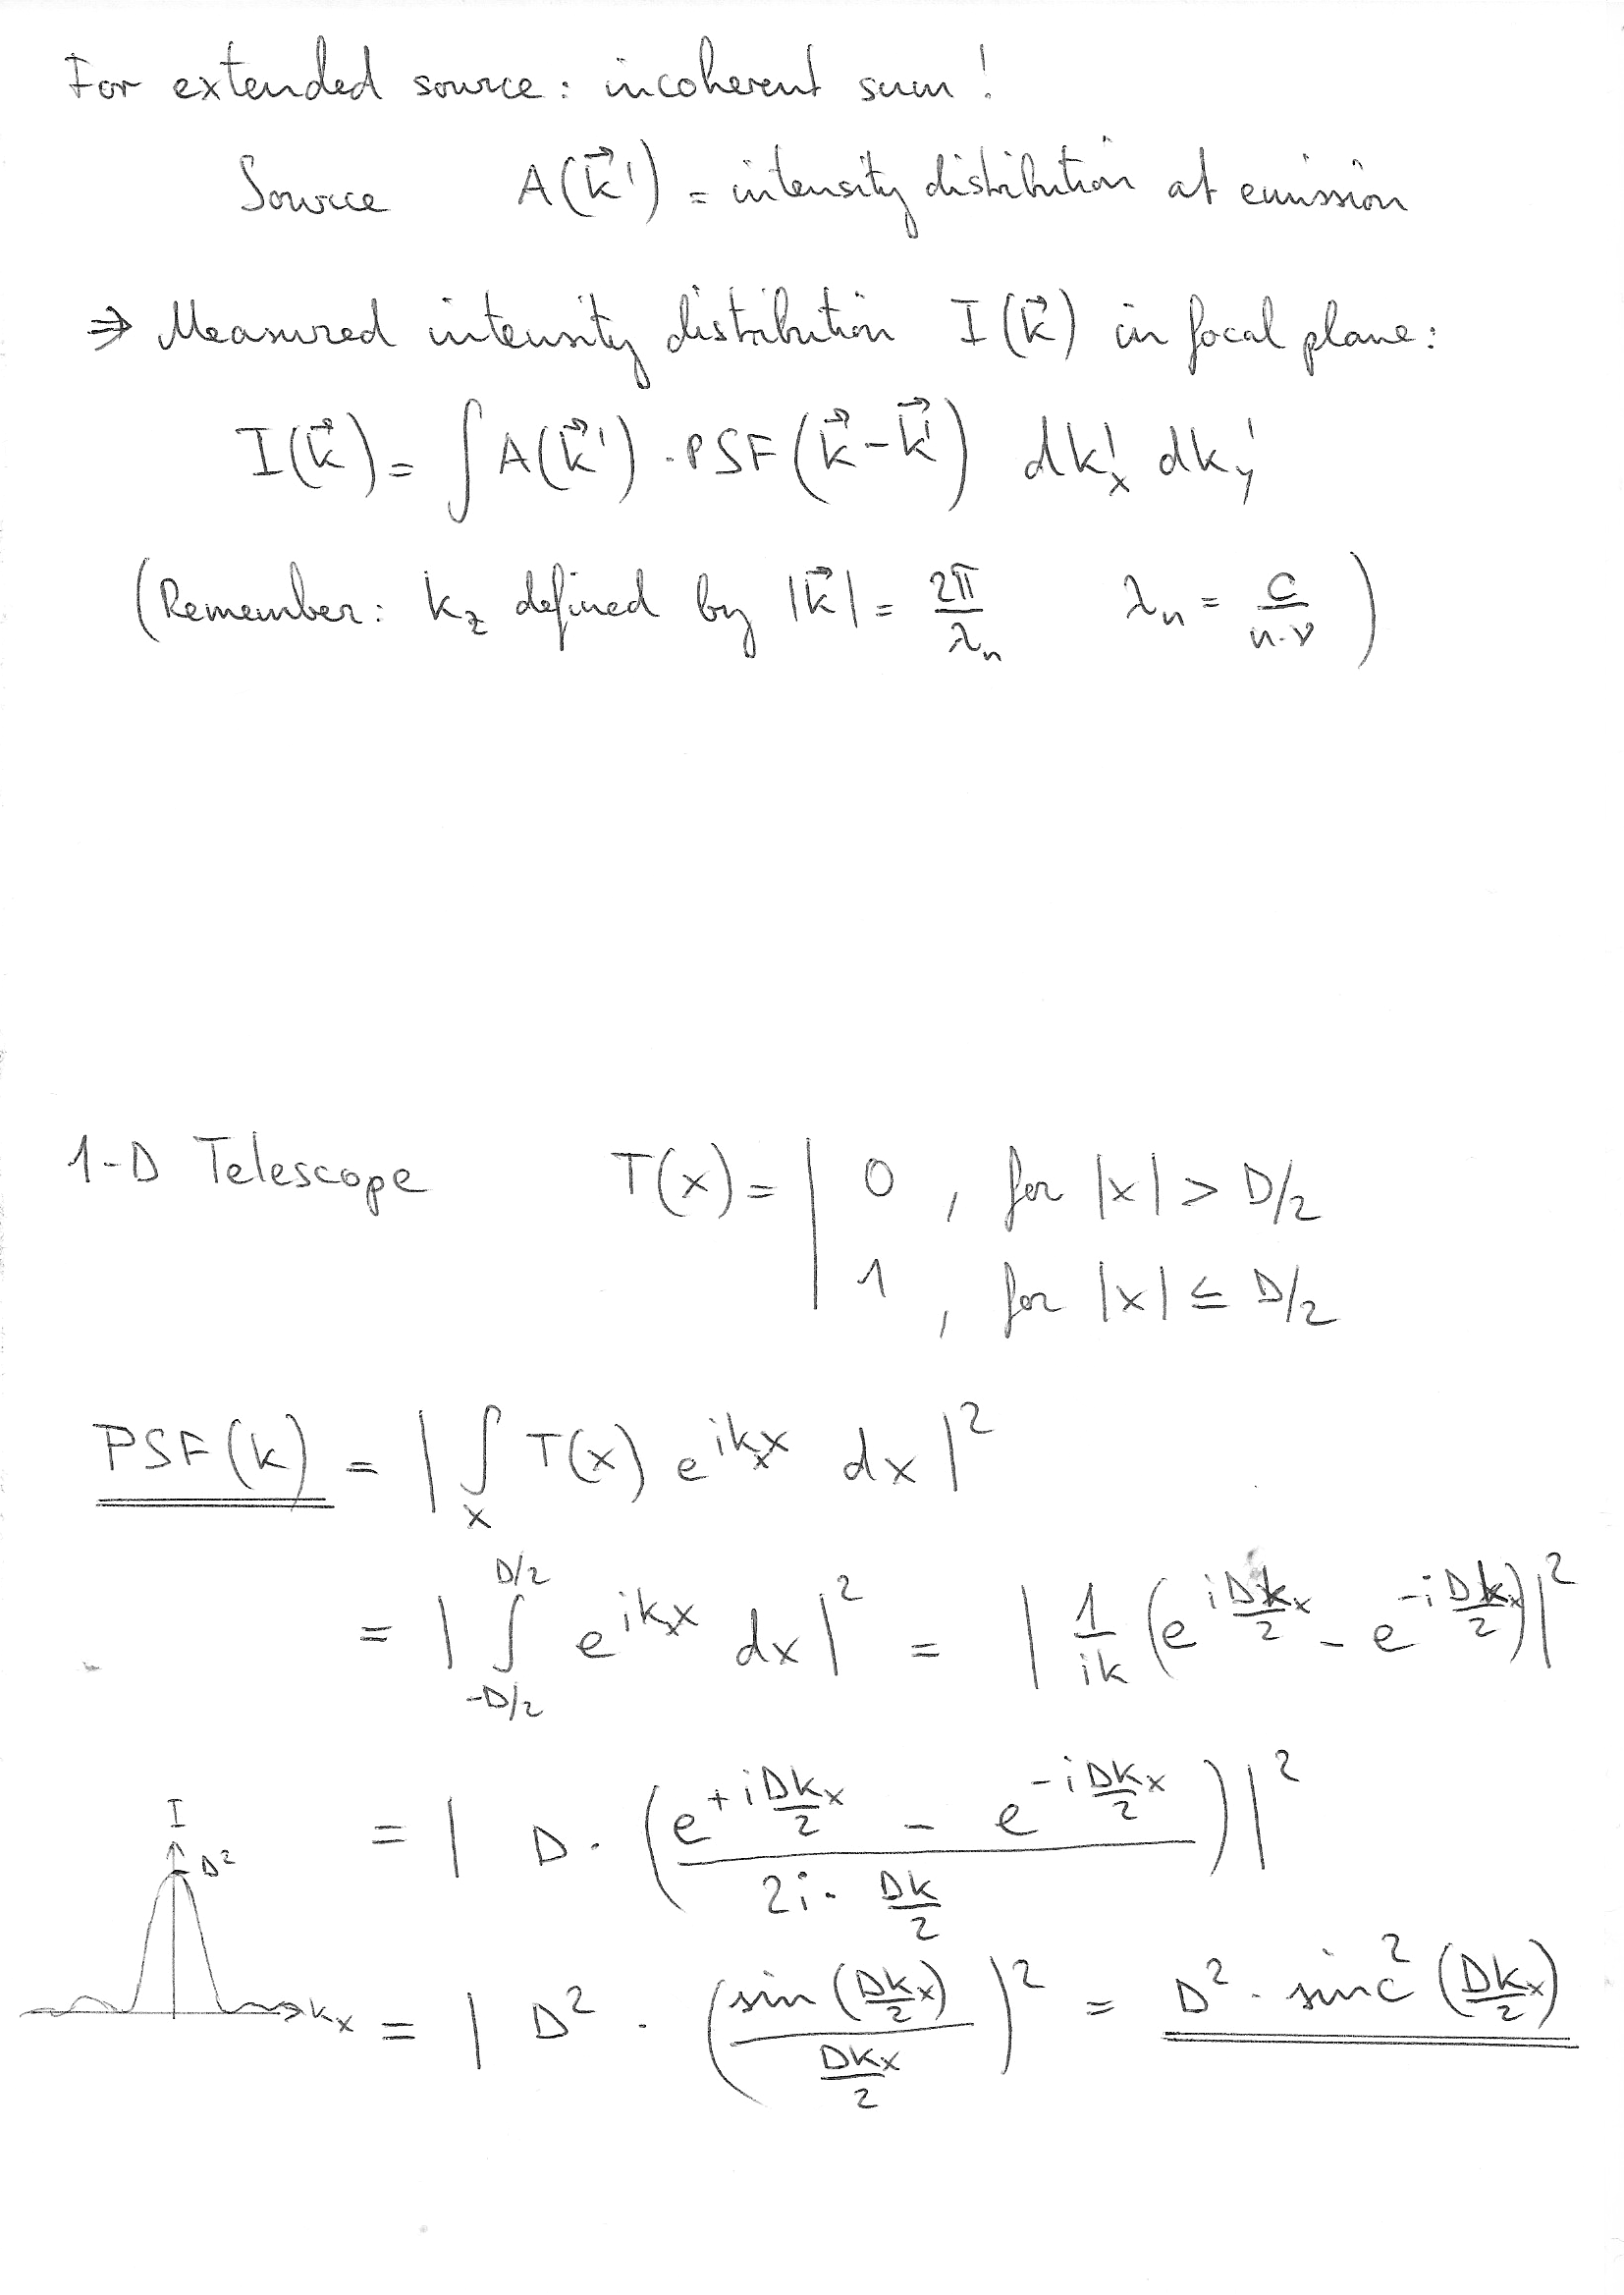 For extended source: incoherent sum!
Source A(k⃗') = intensity distribution at emission
⇒ Measured intensity distribution I(k⃗) in focal plane:
I(k⃗) = ∫ A(k⃗') · PSF(k⃗ - k⃗') dk'ₓ dk'ᵧ
(Remember: k_z defined by |k⃗| = 2π/λₙ λₙ = c/(n·ν))
1-D Telescope T(x) = | 0 , for |x| > D/2
1 , for |x| ≤ D/2
PSF(k) = | ∫_x T(x) e^{ikₓx} dx |²
= | ∫_{-D/2}^{D/2} e^{ikₓx} dx |² = | 1/(ik) (e^{i Dkₓ/2} - e^{-i Dkₓ/2}) |²
= | D · ( (e^{+i Dkₓ/2} - e^{-i Dkₓ/2}) / (2i · Dk/2) ) |²
I
D²
kₓ
= | D² · ( sin(Dkₓ/2) / (Dkₓ/2) )² = D² · sinc² (Dkₓ/2)